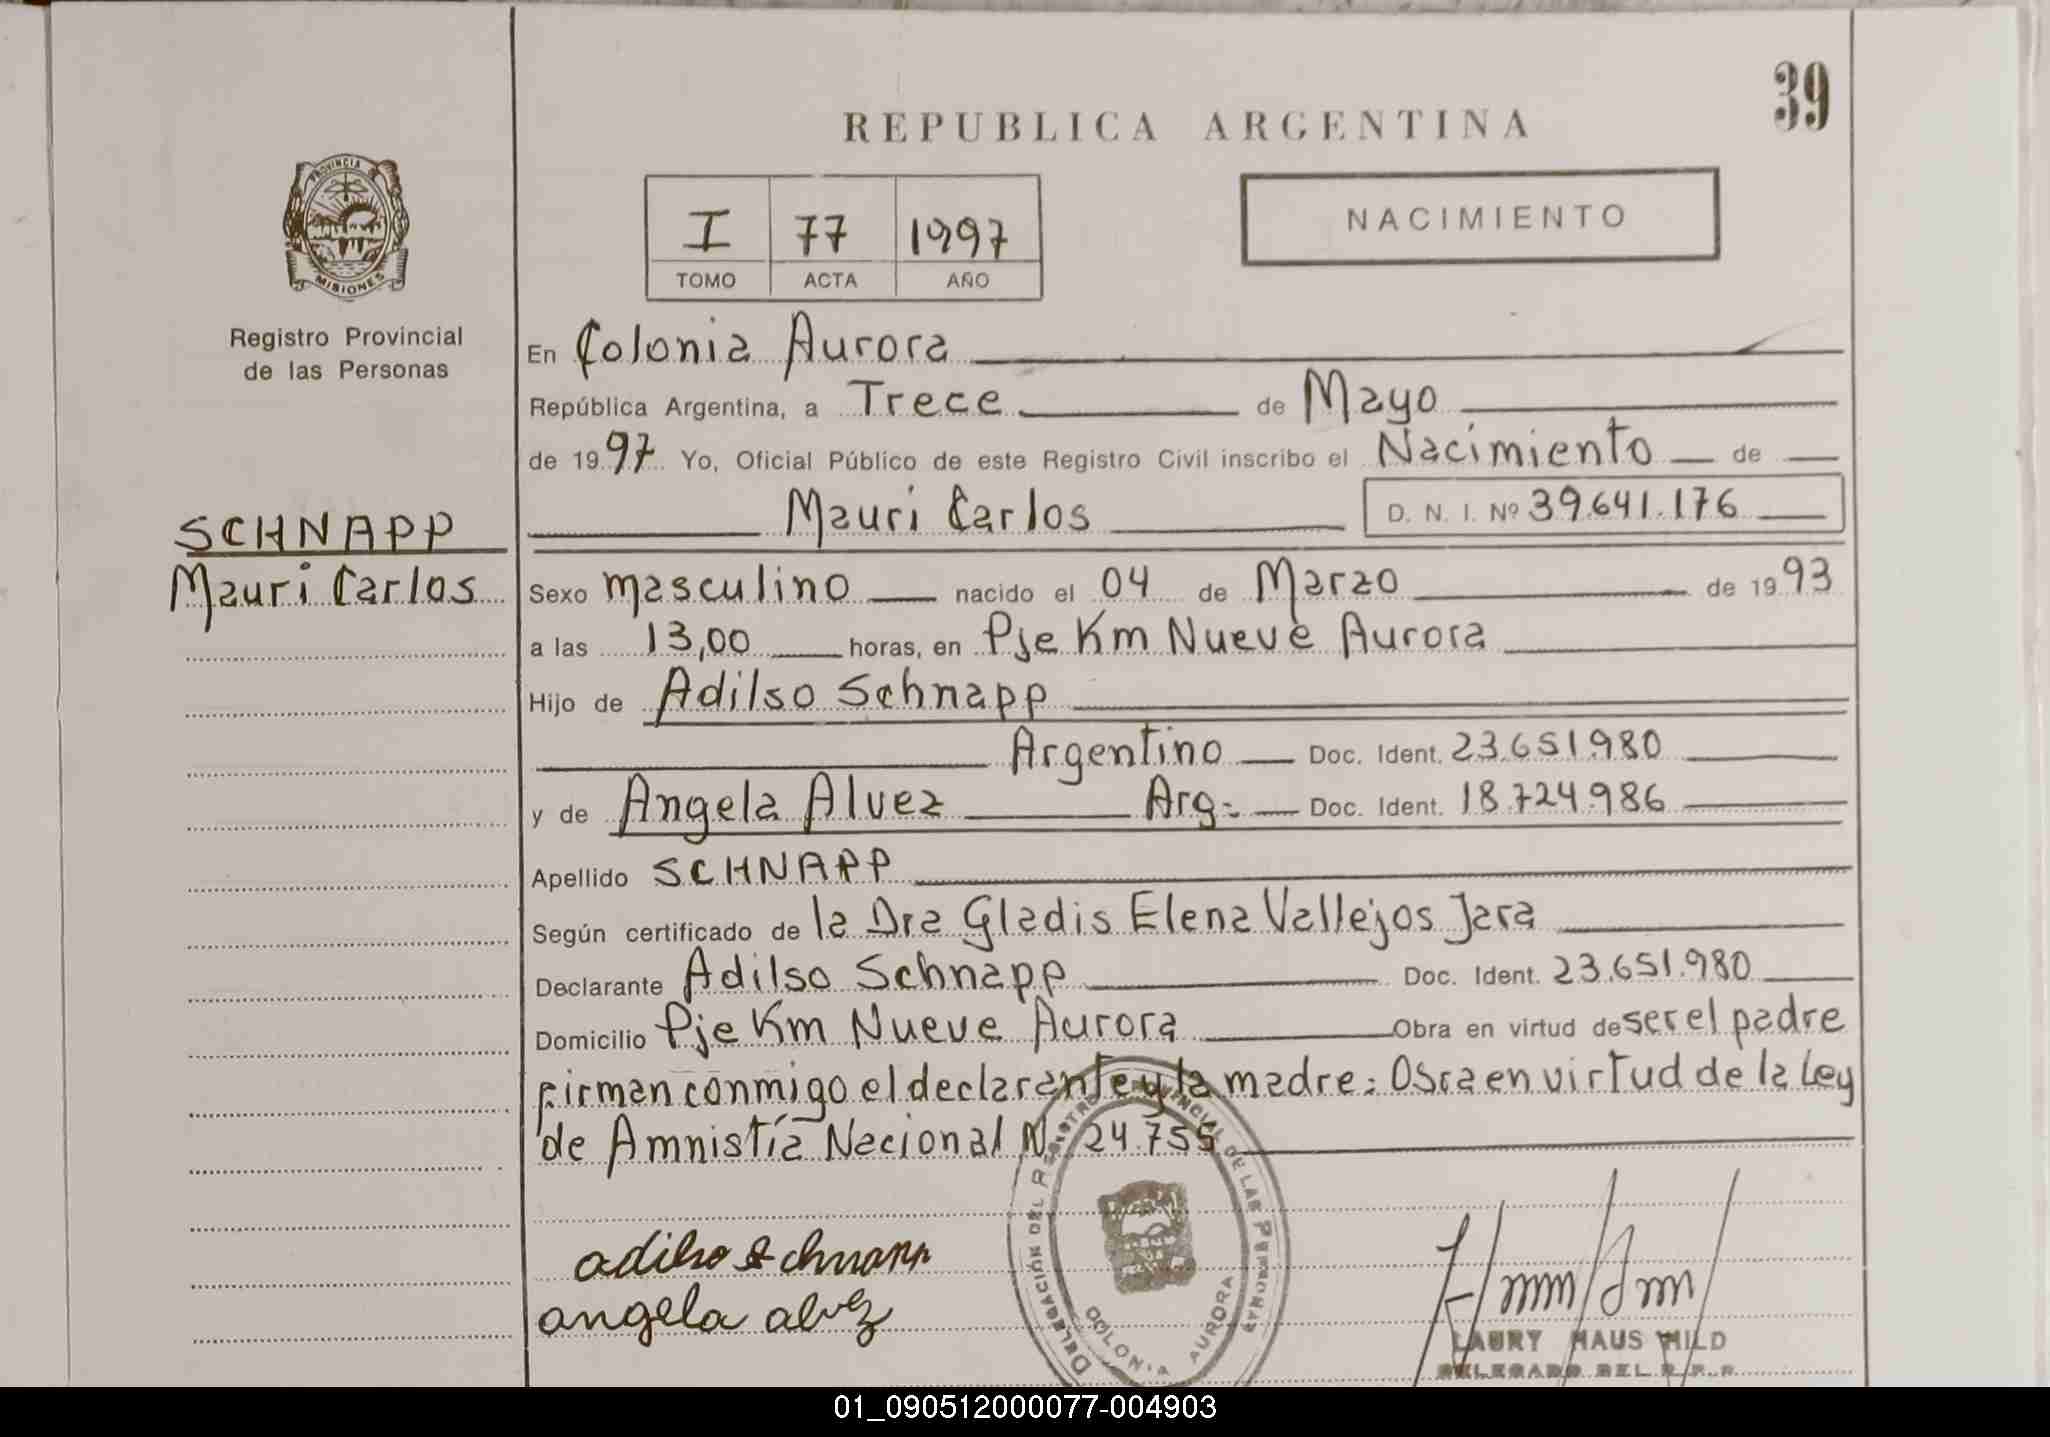 39
REPUBLICA ARGENTINA
PROVINCIA DE
MISIONES
I 77 1997
TOMO ACTA AÑO
NACIMIENTO
Registro Provincial
de las Personas
SCHNAPP
Mauri Carlos
En Colonia Aurora
República Argentina, a Trece de Mayo
de 1997 Yo, Oficial Público de este Registro Civil inscribo el Nacimiento de
Mauri Carlos D. N. I. Nº 39.641.176
Sexo masculino nacido el 04 de Marzo de 1993
a las 13,00 horas, en Pje Km Nueve Aurora
Hijo de Adilso Schnapp
Argentino Doc. Ident. 23.651.980
y de Angela Alvez Arg. Doc. Ident. 18.724.986
Apellido SCHNAPP
Según certificado de la Dra Gladis Elena Vallejos Jara
Declarante Adilso Schnapp Doc. Ident. 23.651.980
Domicilio Pje Km Nueve Aurora Obra en virtud de ser el padre
firman conmigo el declarante y la madre: Obra en virtud de la Ley
de Amnistía Nacional N. 24.755
DELEGACIÓN DEL REGISTRO PROVINCIAL DE LAS PERSONAS
COLONIA AURORA
adilso schnapp
angela alvez
LAURY HAUS WILD
DELEGADO DEL R.P.P.
01_090512000077-004903